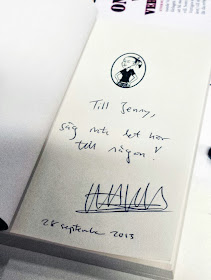 Till Jenny,
säg inte det här
till någon!
28 september 2013